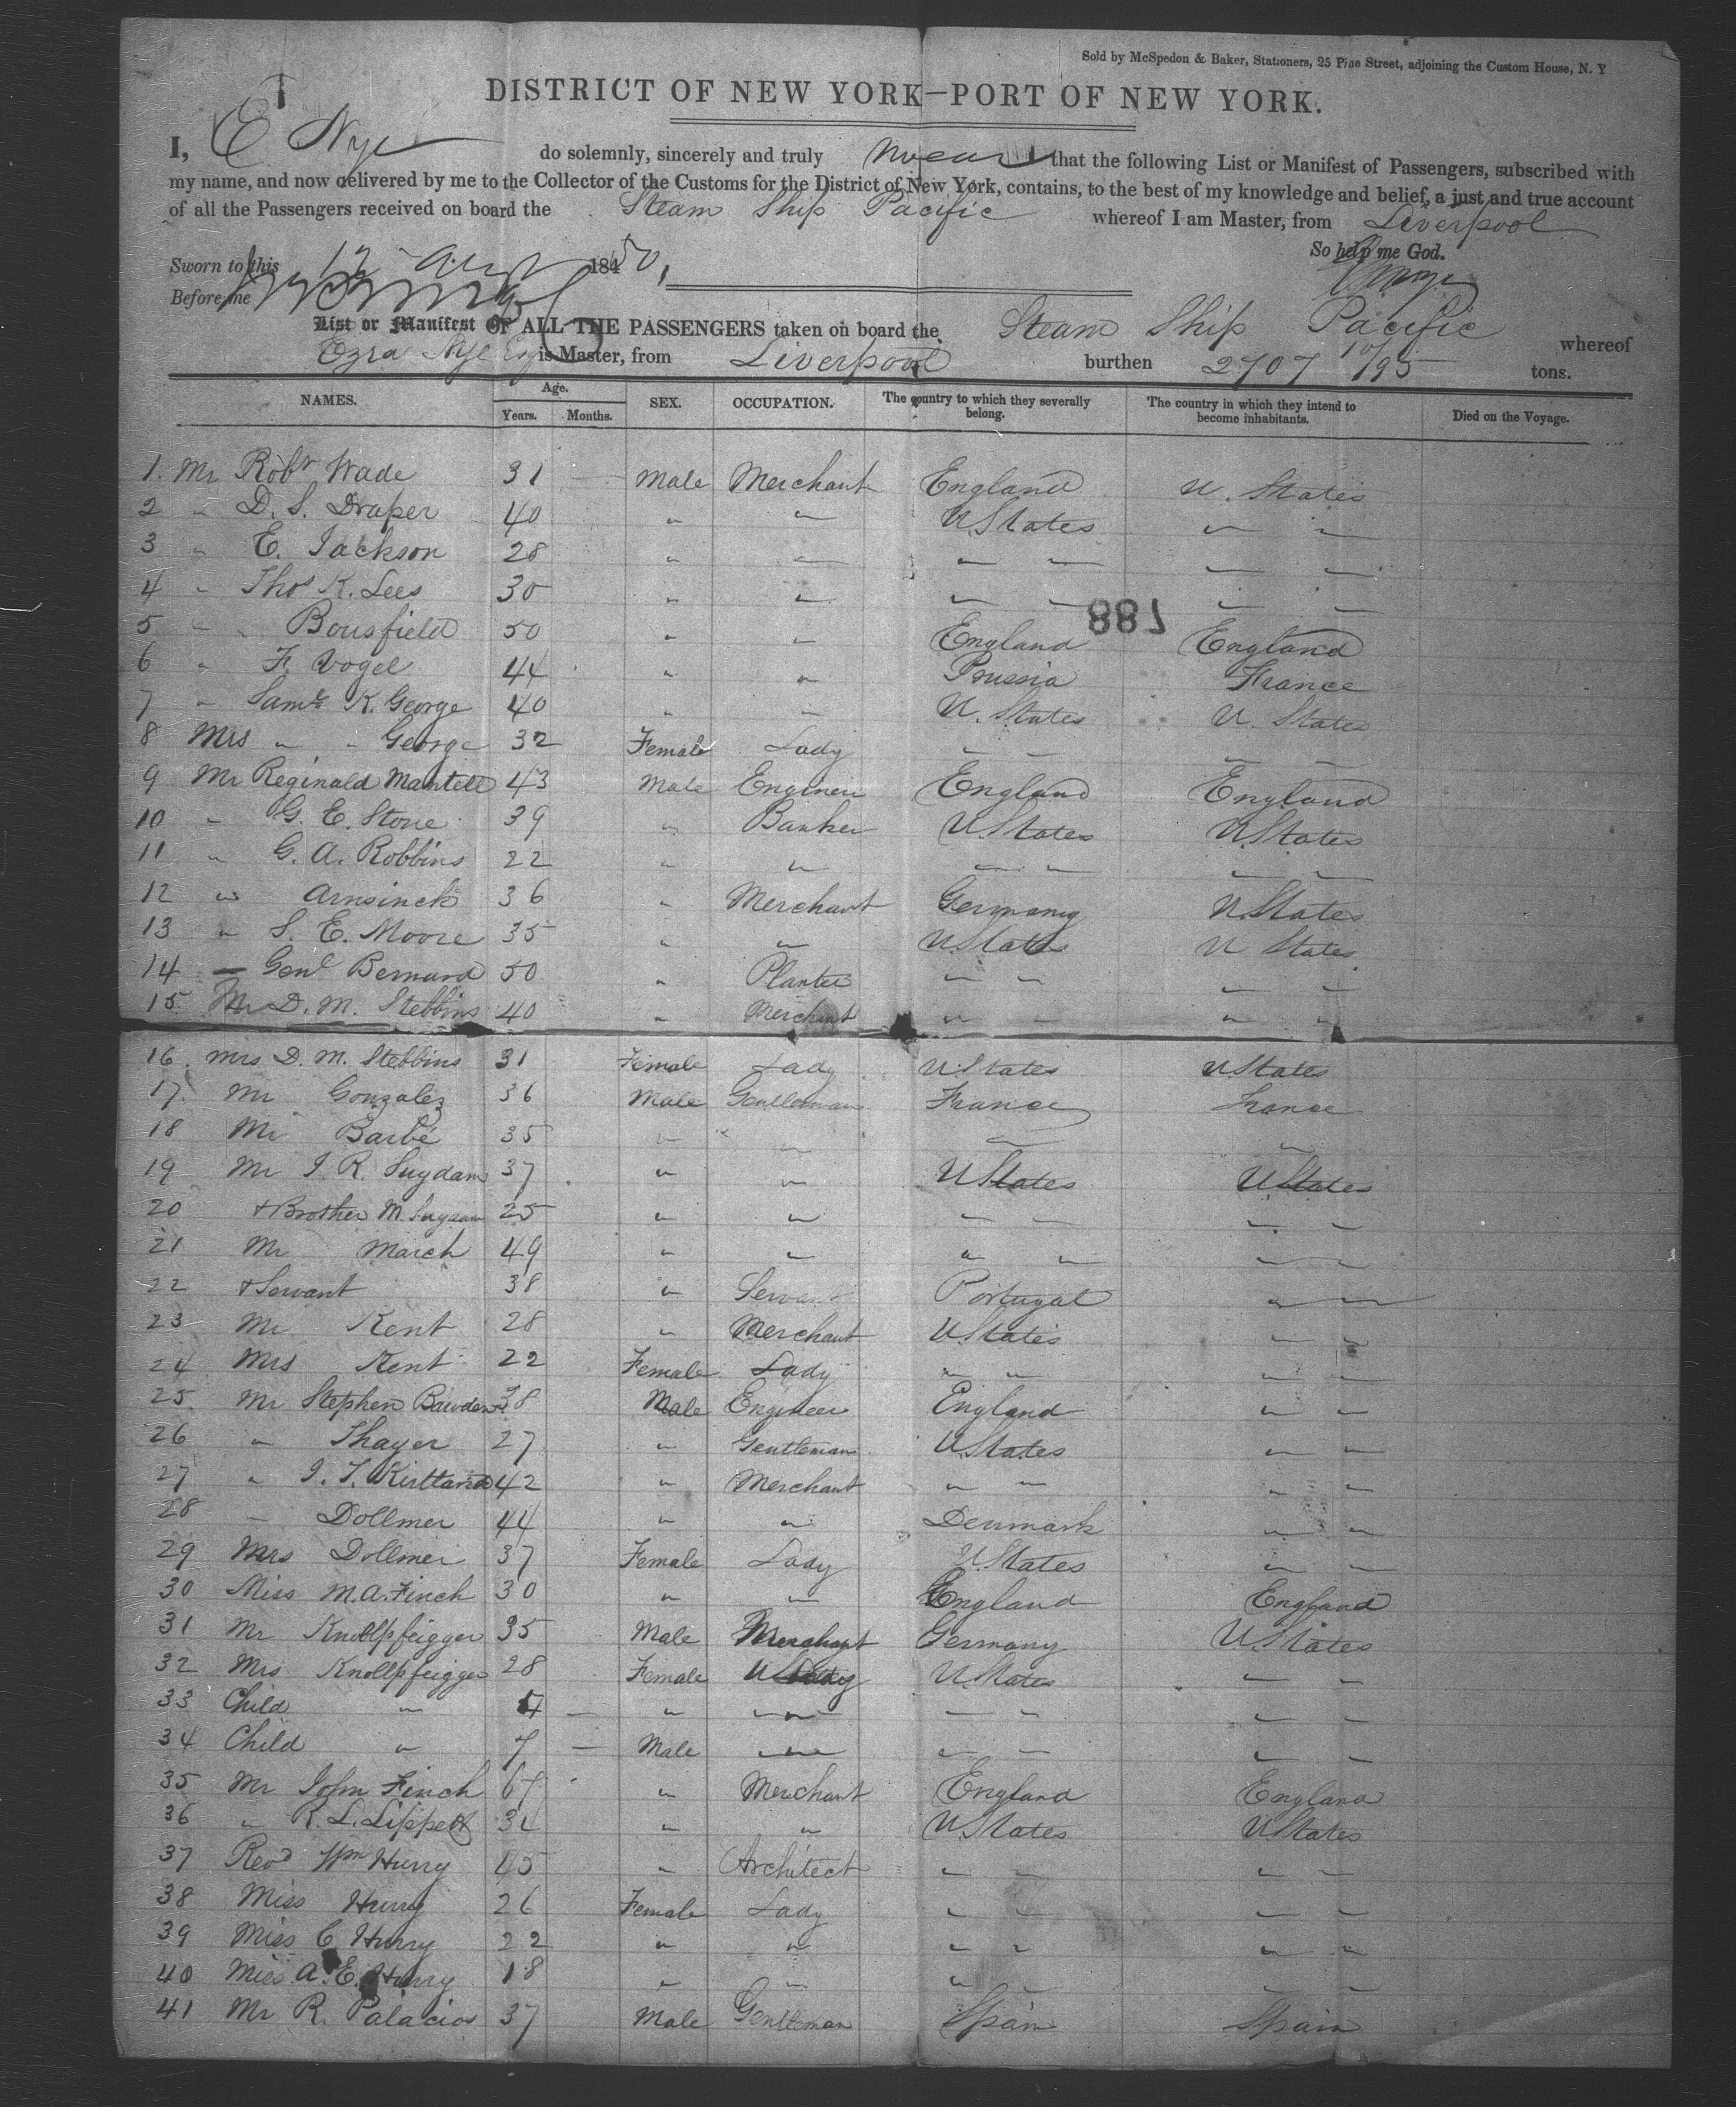 Sold by McSpedon & Baker, Stationers, 25 Pine Street, adjoining the Custom House, N. Y
DISTRICT OF NEW YORK—PORT OF NEW YORK.
I, E Nye do solemnly, sincerely and truly swear that the following List or Manifest of Passengers, subscribed with
my name, and now delivered by me to the Collector of the Customs for the District of New York, contains, to the best of my knowledge and belief, a just and true account
of all the Passengers received on board the Steam Ship Pacific whereof I am Master, from Liverpool
So help me God.
Sworn to this 12 Augt 1850,
Before me
E Nye
List or Manifest OF ALL THE PASSENGERS taken on board the Steam Ship Pacific whereof
Ezra Nye Esq is Master, from Liverpool burthen 2707 10/95 tons.
NAMES. Age. Years. Months. SEX. OCCUPATION. The country to which they severally belong. The country in which they intend to become inhabitants. Died on the Voyage.
1. Mr Robt Wade 31 — Male Merchant England U. States
2 " D. S. Draper 40 " " U States " "
3 " E. Jackson 28 " " " " " "
4 " Thos K. Lees 30 " " " " " "
887
5 " " Bousfield 50 " " England England
6 " F. Vogel 44 " " Prussia France
7 " Saml K. George 40 " " U. States U. States
8 Mrs " " George 32 Female Lady " " " "
9 Mr Reginald Mantell 43 Male Engineer England England
10 " G. E. Stone 39 " Banker U States U States
11 " G. A. Robbins 22 " " " " " "
12 " Arnsinck 36 " Merchant Germany U States
13 " S. E. Moore 35 " " U States U States
14 — Genl Bernard 50 " Planter " " " "
15. Mr D. M. Stebbins 40 " Merchant " " " "
16. Mrs D. M. Stebbins 31 Female Lady U States U States
17. Mr Gonzalez 36 Male Gentleman France France
18 Mr Barbé 35 " " " "
19 Mr J. R. Suydam 37 " " U States U States
20 + Brother M Suydam 25 " " " " " "
21 Mr March 49 " " " " " "
22 + Servant 38 " Servant Portugal " "
23 Mr Kent 28 " Merchant U States " "
24 Mrs Kent 22 Female Lady " " " "
25. Mr Stephen Bawden 38 Male Engineer England " "
26 " Thayer 27 " Gentleman U States " "
27 " J. T. Kirtland 42 " Merchant " " " "
28 " Dollmer 44 " " Denmark " "
29 Mrs Dollmer 37 Female Lady U States " "
30 Miss M. A. Finch 30 " " England England
31 Mr Knollpfeigger 35 Male Merchant Germany U States
32 Mrs Knollpfeigger 28 Female Lady U States " "
33 Child " — " " " " " "
34 Child " 7 — Male " " " " "
35 Mr John Finch " Merchant England England
36 " R. L. Lippett " " U States U States
37 Revd Wm Hurry 45 " Architect " " " "
38 Miss Hurry 26 Female Lady " " " "
39 Miss C Hurry 22 " " " " " "
40 Miss A. E. Hurry 18 " " " " "
41 Mr R. Palacios 37 Male Gentleman Spain Spain